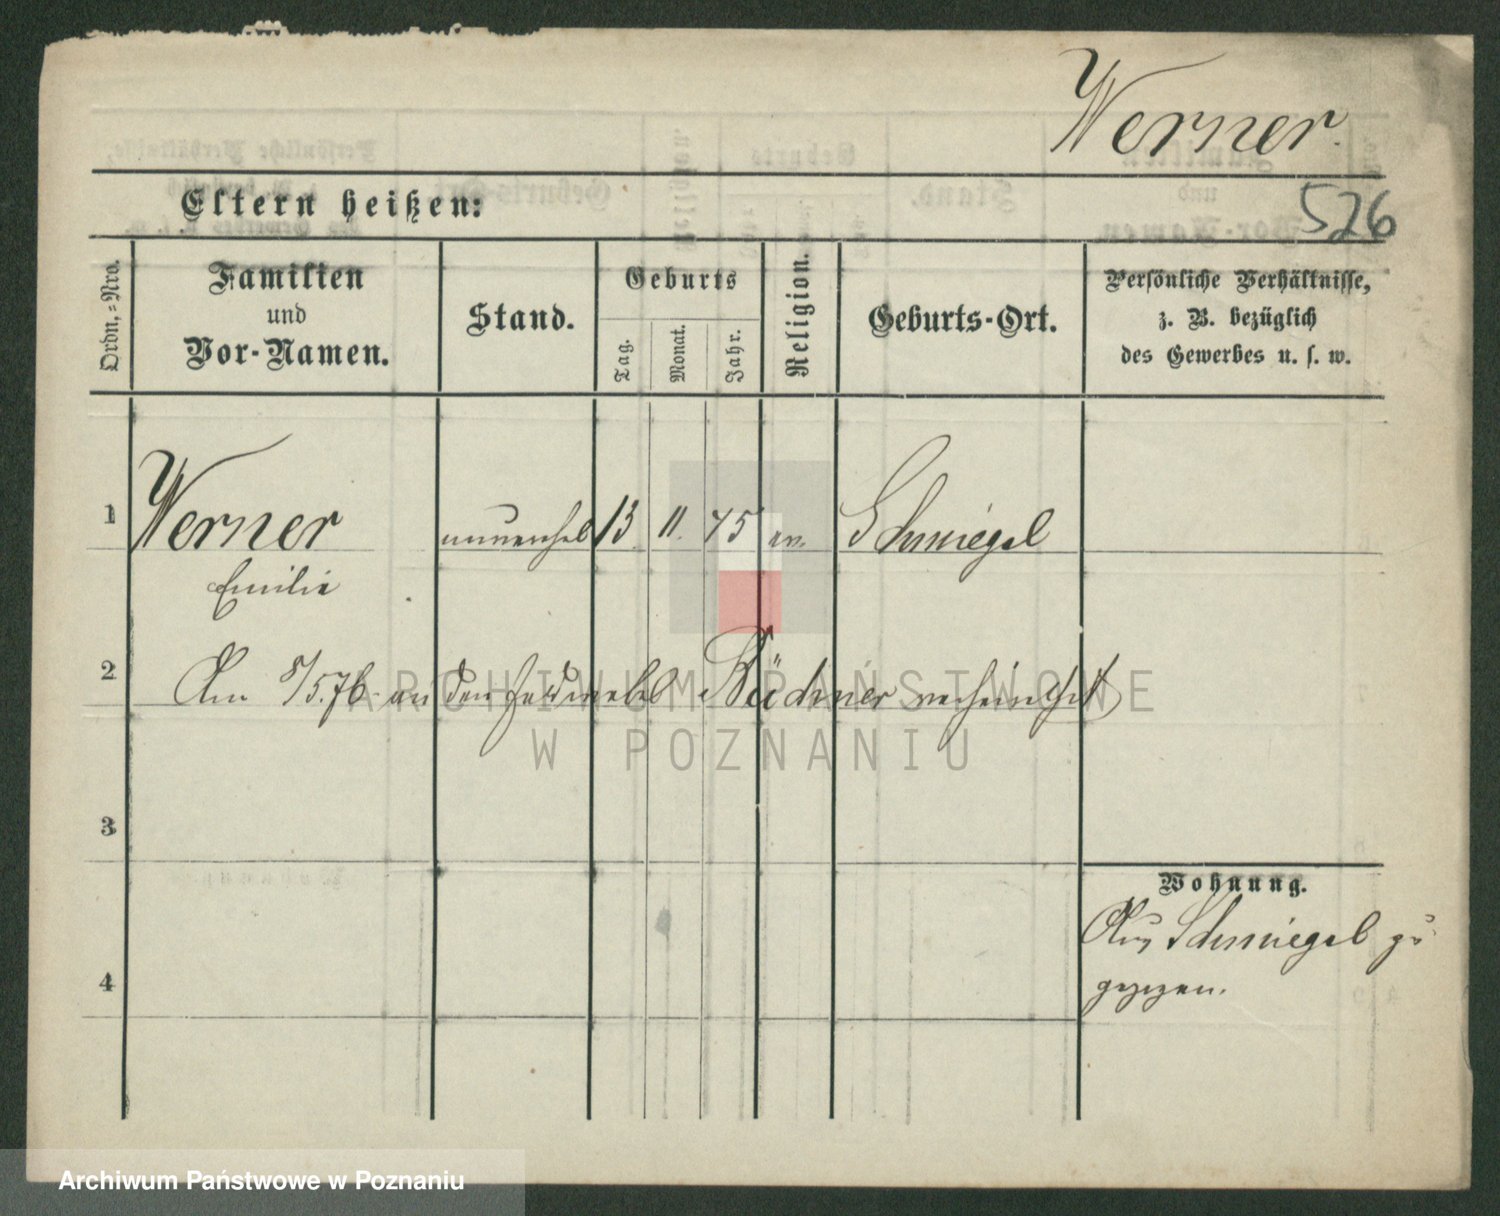 Werner.
526
Eltern heißen:
Ordn.-Nro.
Familien
und
Vor-Namen.
Stand.
Geburts
Tag.
Monat.
Jahr.
Religion.
Geburts-Ort.
Persönliche Verhältnisse,
z. B. bezüglich
des Gewerbes u. s. w.
1 Werner unverehel 13 11. 45 ev. Schmiegel
Emilie
2 Am 8/5.76 an den Feldwebel Büchner verheirathet
3
4
Wohnung.
Aus Schmiegel zu
gezogen.
ARCHIWUM PAŃSTWOWE
W POZNANIU
Archiwum Państwowe w Poznaniu